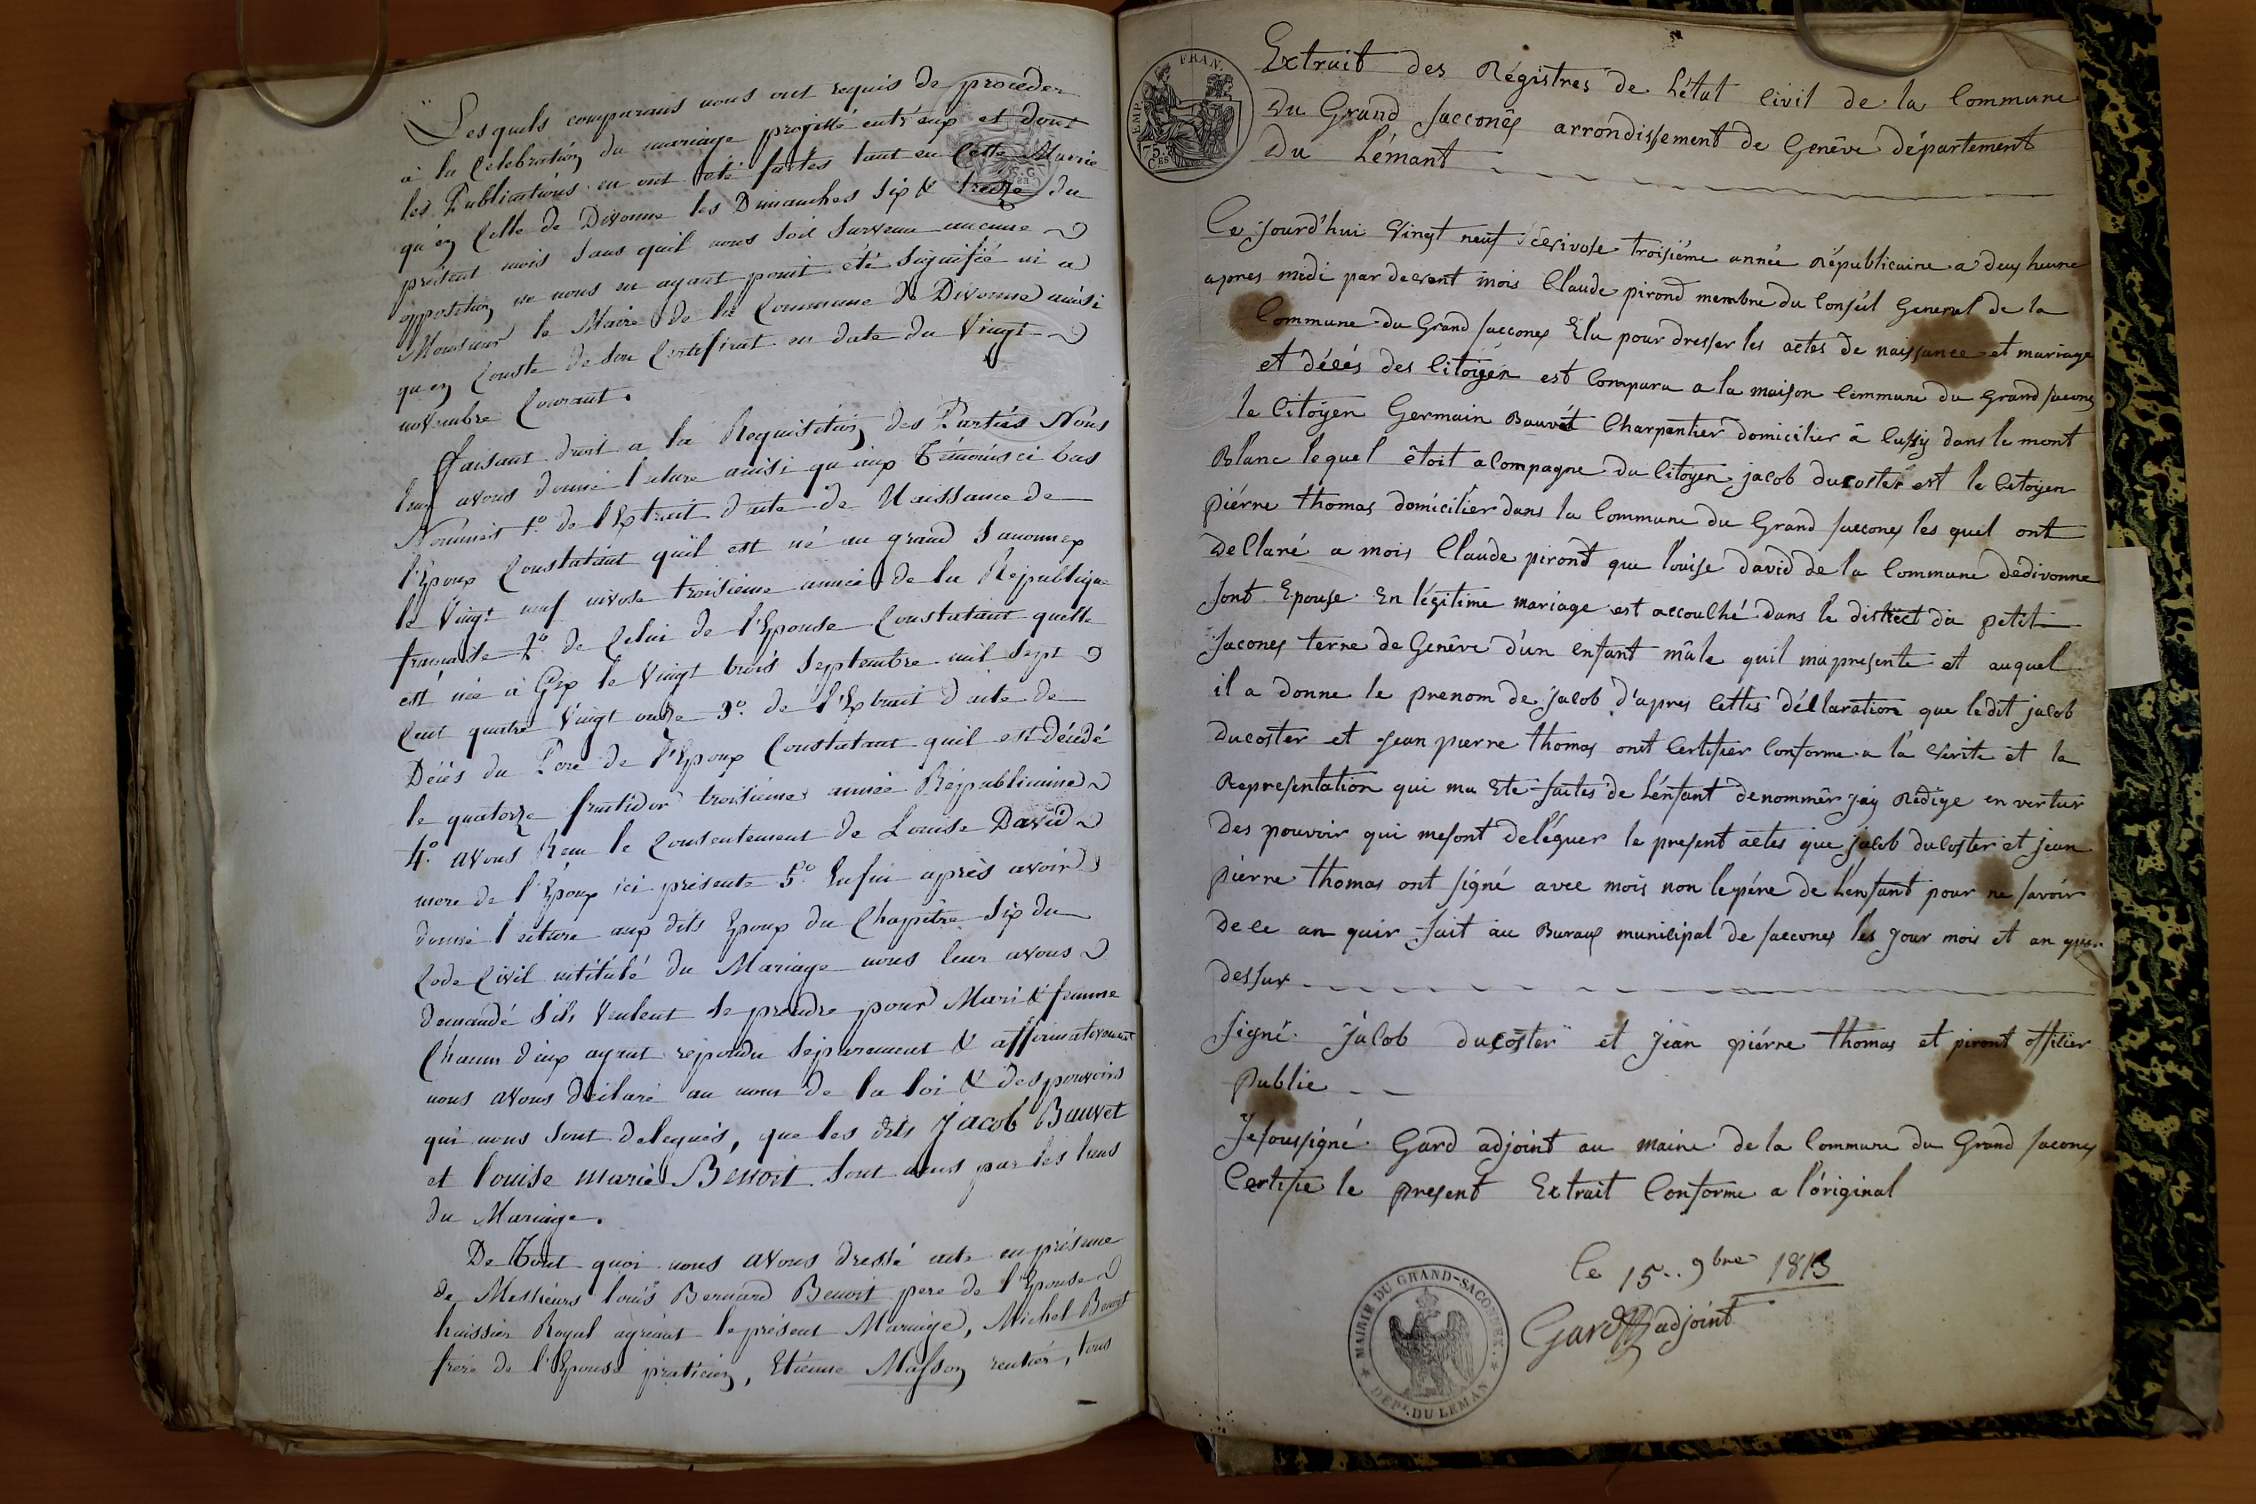 Lesquels comparans nous ont requis de proceder
à la Célébration du mariage projetté entr'eux et dont
les Publications en ont été faites tant en cette Mairie
qu'en Celle de Divonne les Dimanches Six & treize du
présent mois sans quil nous soit survenu aucune
opposition ne nous en ayant point été signifié ni a
Monsieur le Maire de la Commune de Divonne ainsi
qu'en Conste de son Certificat en date du Vingt
novembre Courant.
faisant droit a la Requisition des Parties Nous
leur avons donné lecture ainsi qu'aux Témoins ci bas
Nommés 1º. de l'Extrait d'acte de Naissance de
l'Epoux Constatant qu'il est né au grand Saconnex
le Vingt neuf nivose troisieme année de la République
francaise 2º. de Celui de l'Epouse Constatant quelle
est née à Gex le Vingt trois Septembre mil Sept
Cent quatre Vingt onze 3º. de l'Extrait d'acte de
Décés du Pere de l'Epoux Constatant quil est Décédé
le quatorze fructidor troisieme année Républicaine
4º. avons Recu le Consentement de Louise David
mere de l'Époux ici présente 5º. Enfin après avoir
donné lecture aux dits Epoux du Chapitre Six du
Code Civil intitulé du Mariage nous leur avons
demandé s'ils veulent se prendre pour Mari & femme
Chacun d'eux ayant répondu séparement & affirmativement
nous avons déclaré au nom de la loi & des pouvoirs
qui nous sont delegués, que les dits Jacob Bauvet
et louise marie Benoit sont unis par les liens
du Mariage.
De Tout quoi nous avons dressé acte en présence
de Messieurs louis Bernard Benoit pere de l'Epouse
huissier Royal agréant le présent Mariage, Michel Benoit
frere de l'Epouse praticien, Etienne Masson rentier, tous
EMP. FRAN.
75 Ces
Extrait des Régistres de L'état Civil de la Commune
Du Grand Sacconêx arrondissement de Genêve département
Du Lémant
Ce jourd'hui Vingt neuf nivose troisiéme année républicaine a deux heure
apres midi par devent mois Claude pirond membre du Conseil General de la
Commune du Grand Sacconex Elu pour dresser les actes de naissance et mariage
et décés des Citoÿen est Comparu a la maison Commune du Grand Saconex
le Citoÿen Germain Bauvet Charpentier domicilier a Cussy dans le mont
Blanc lequel êtoit acompagne du Citoyen jacob ducoster est le Citoyen
piérre thomas domicilier dans la Commune du Grand Sacconex les quel ont
declaré a mois Claude pirond que louise david de la Commune dedivonne
sont Epouse En légitime mariage est accouché dans le district du petit
Saconex terre de Genêve d'un enfant mâle quil ma presente et auquel
il a donne le prenom de jacob d'apres cettes déclaration que ledit jacob
ducoster et jean pierre thomas ont Certifier Conforme a la Verite et la
Representation qui ma Ete faites de L'énfant denommêr jay Redige en vertur
des pouvoir qui mesont deléguer le present actes que jacob ducoster et jean
piérre thomas ont signé avec mois non lepére de L'enfant pour ne savoir
de ce an quir fait au Buraux municipal de Sacconex les jour mois et an que
dessur
Signé jacob ducoster et jean piérre thomas et piront officier
public
Je soussigné Gard adjoint au maire de la Commune du Grand Saconex
Certifie le present Extrait Conforme a l'original
le 15.. 9bre 1813
Gard adjoint
MAIRIE DU GRAND-SACONNEX.
DEPt. DU LEMAN